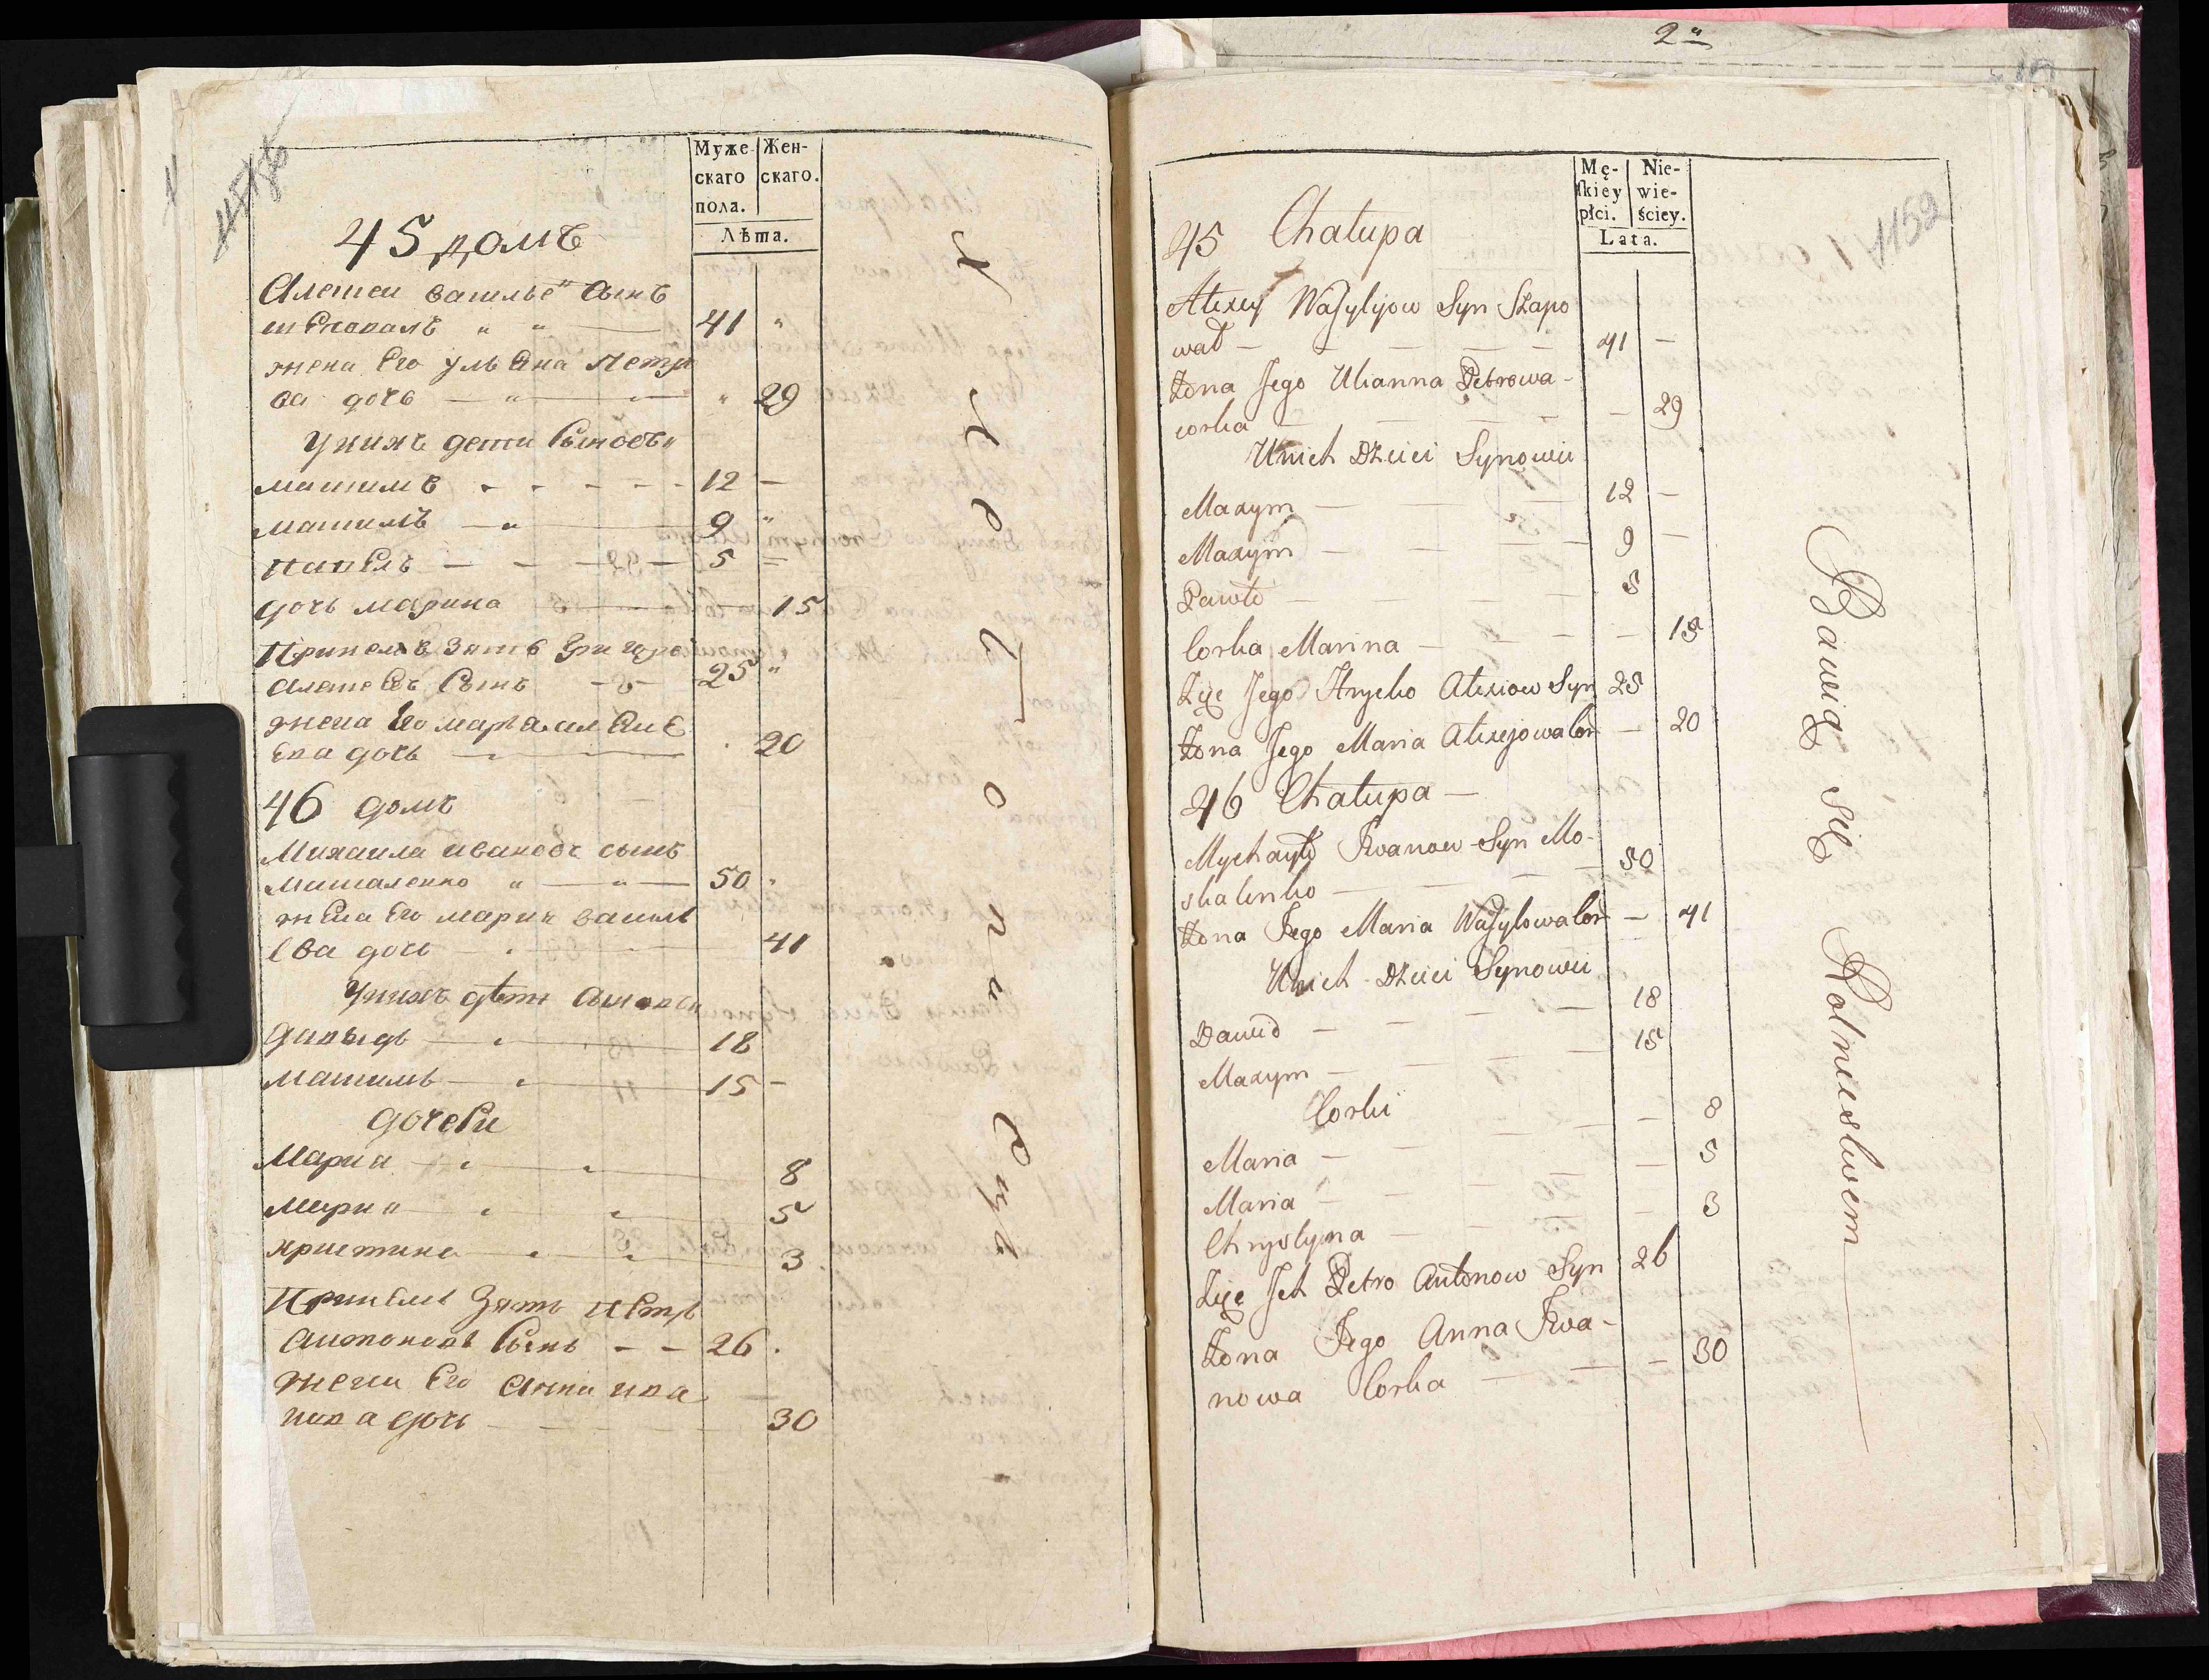 Муже- Жен-
скаго скаго.
пола.
Лѣта.
45 домъ
Алексеи василье" сынъ
шаповалъ " " — 41 "
жена Его ульяна петро
ва дочь — " — " 29
Унихъ дети сыновья
максимъ - - - - - 12 —
максимъ — " — 9 "
павелъ — — — — 5 =
дочь марина — 15
Приемъ зять григоре
алексеевъ сынъ — 25 "
жена Его марья алексѣ
ева дочь — 20
46 домъ
Михаила ивановъ сынъ
Москаленко " — " — 50 "
жена Его мария василь
ева дочь — 41
Унихъ дѣти сыновья
давыдъ — 18
максимъ — 15 —
дочери
Мария — 8
Мария — 5
христина — 3
Приемъ Зять петръ
антоновъ сынъ — — 26 .
жена Его анна ива
нова дочь — 30
Хлебопашцы
2"
1152
Mę- Nie-
skiey wie-
płci. ściey.
Lata.
45 Chałupa
Alexey Wasylyow Syn Szapo
wał — — — — — 41 —
Żona Jego Ulianna Petrowa-
corka — — — — — 29
Unich Dzieci Synowii
Maxym — — — 12 —
Maxym — — — — 9 —
Pawło — — — 5
Corka Marina — — — — 15
Zięć Jego Hryćko Alexiow Syn 25
Żona Jego Maria Alexejowa Cor — 20
46 Chałupa —
Mychayło Iwanow Syn Mo-
skalenko — — — — 50
Żona Jego Maria Wasylowa Cor — 41
Unich Dzieci Synowii
Dawid — — — — 18
Maxym — — — 15
Corki
Maria — — — — — 8
Maria — — — — — 5
Chrystyna — — — — 3
Zięć Ich Petro Antonow Syn 26
Żona Jego Anna Iwa-
nowa Corka — — — 30
Bawią się Rolnictwem